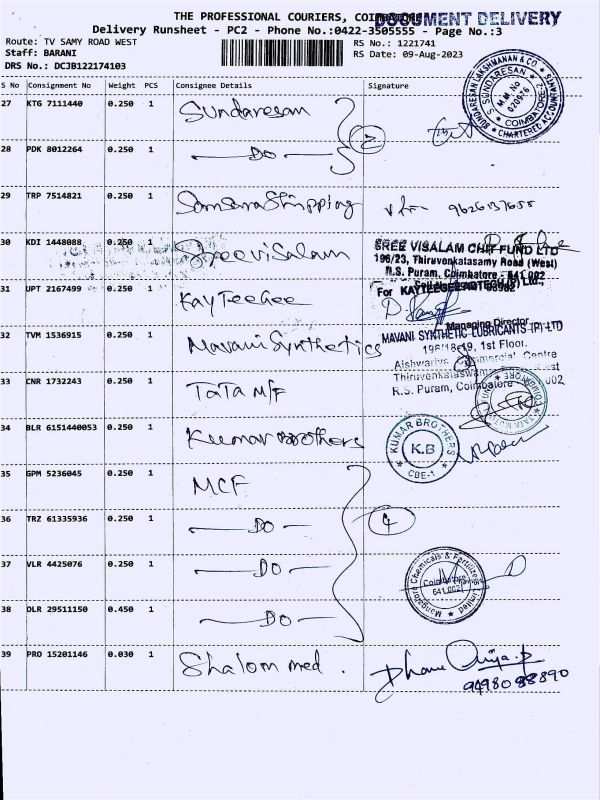 THE PROFESSIONAL COURIERS, COIMBATORE
DOCUMENT DELIVERY
Delivery Runsheet - PC2 - Phone No.:0422-3505555 - Page No.:3
Route: TV SAMY ROAD WEST
RS No.: 1221741
Staff: BARANI
RS Date: 09-Aug-2023
DRS No.: DCJB122174103
S No Consignment No Weight PCS Consignee Details Signature
27 KTG 7111440 0.250 1 Sundaresan
SUNDARESAN LAKSHMANAN & CO. CHARTERED ACCOUNTANTS
S. SUNDARESAN
M.M. No
020976
COIMBATORE-2
28 PDK 8012264 0.250 1 — Do — 2
29 TRP 7514821 0.250 1 Samsara Shipping 9626137655
30 KDI 1448088 0.250 1 Sree visalam
SREE VISALAM CHIT FUND LTD
196/23, Thiruvenkatasamy Road (West)
R.S. Puram, Coimbatore - 641 002
31 UPT 2167499 0.250 1 KayTeeGee
For KAYTEEGEE
Managing Director
32 TVM 1536915 0.250 1 Mavani Synthetics
MAVANI SYNTHETIC LUBRICANTS (P) LTD
196/18-19, 1st Floor.
Aishwariya Commercial Centre
R.S. Puram, Coimbatore
33 CNR 1732243 0.250 1 TATA M/F
34 BLR 6151440053 0.250 1 Kumar Brothers
KUMAR BROTHERS
K.B
CBE-1
35 GPM 5236045 0.250 1 MCF
36 TRZ 61335936 0.250 1 — Do — 4
37 VLR 4425076 0.250 1 — Do —
Mangalore Chemicals & Fertilizers Limited
Coimbatore
641 002
38 DLR 29511150 0.450 1 — Do —
39 PRO 15201146 0.030 1 Shalom med.
Dhana Priya.P
9498088890